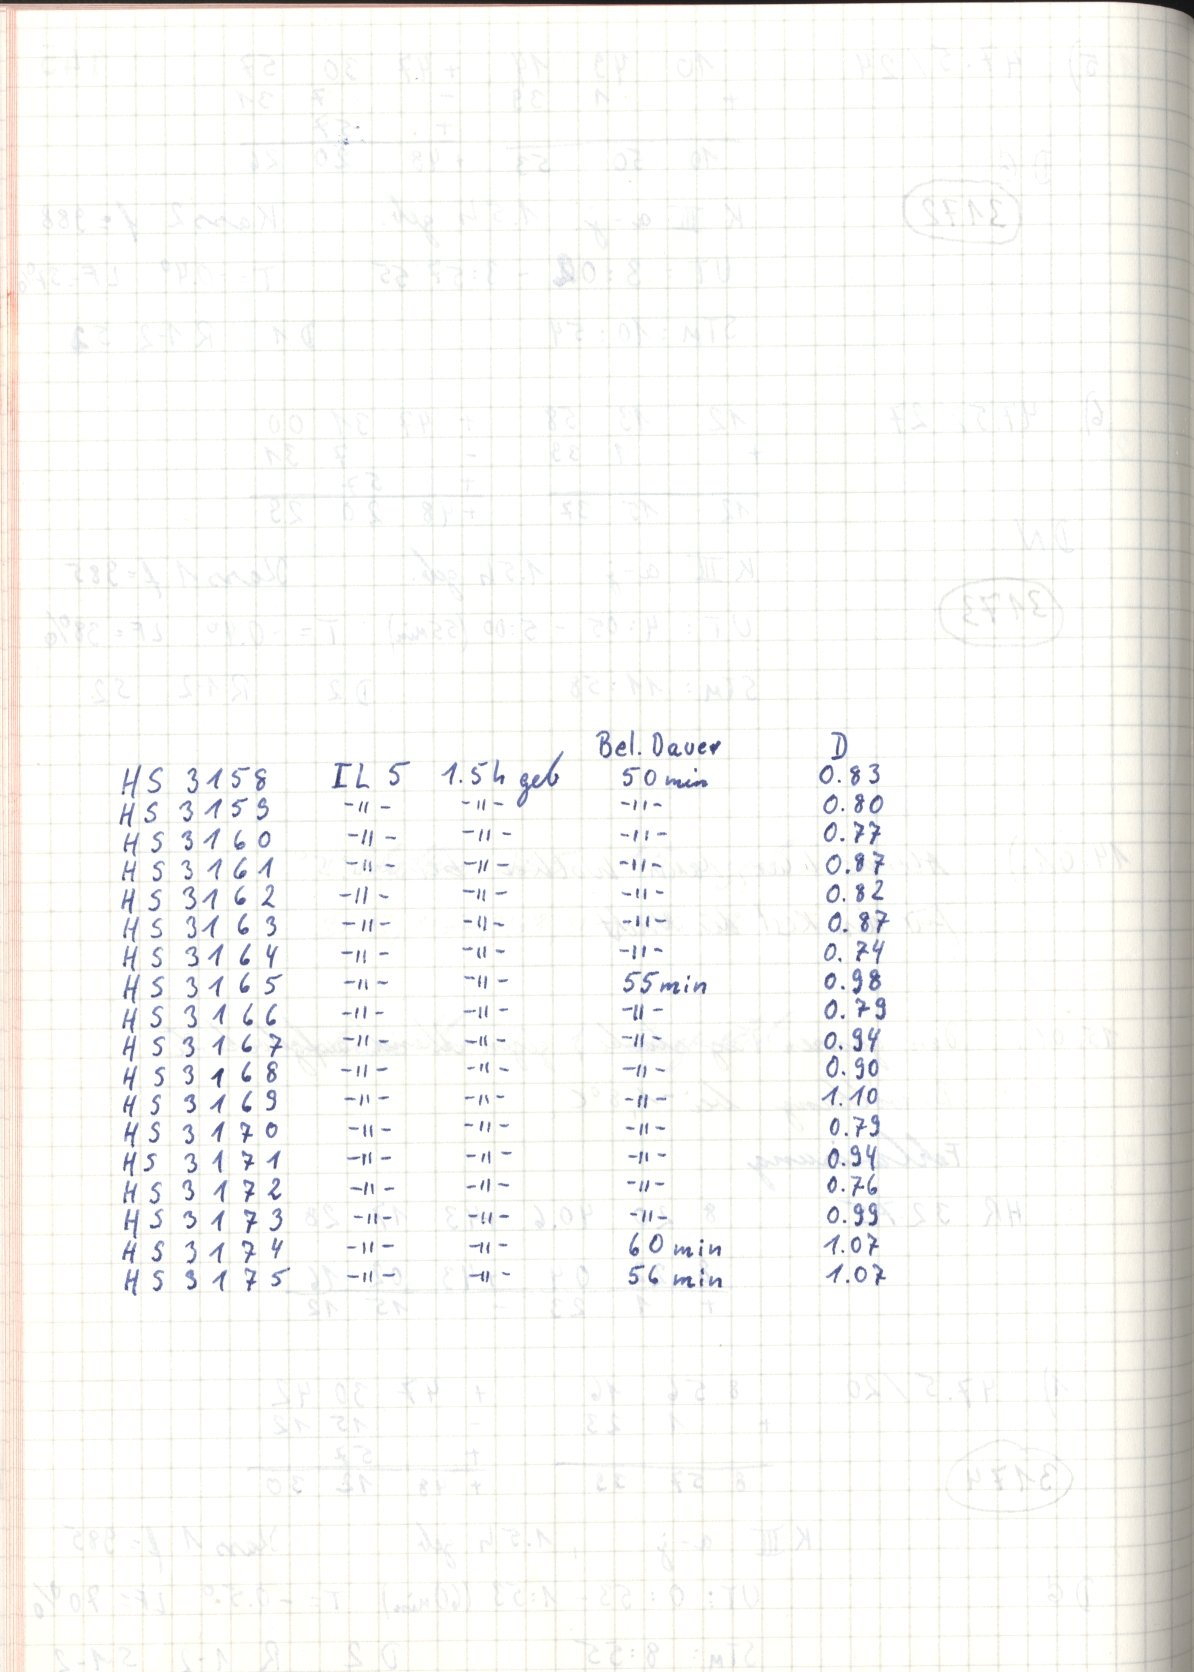 Bel. Dauer D
HS 3158 IL 5 1.5h geb 50 min 0.83
HS 3159 -"- -"- -"- 0.80
HS 3160 -"- -"- -"- 0.77
HS 3161 -"- -"- -"- 0.87
HS 3162 -"- -"- -"- 0.82
HS 3163 -"- -"- -"- 0.87
HS 3164 -"- -"- -"- 0.74
HS 3165 -"- -"- 55 min 0.98
HS 3166 -"- -"- -"- 0.79
HS 3167 -"- -"- -"- 0.94
HS 3168 -"- -"- -"- 0.90
HS 3169 -"- -"- -"- 1.10
HS 3170 -"- -"- -"- 0.79
HS 3171 -"- -"- -"- 0.94
HS 3172 -"- -"- -"- 0.76
HS 3173 -"- -"- -"- 0.99
HS 3174 -"- -"- 60 min 1.07
HS 3175 -"- -"- 56 min 1.07